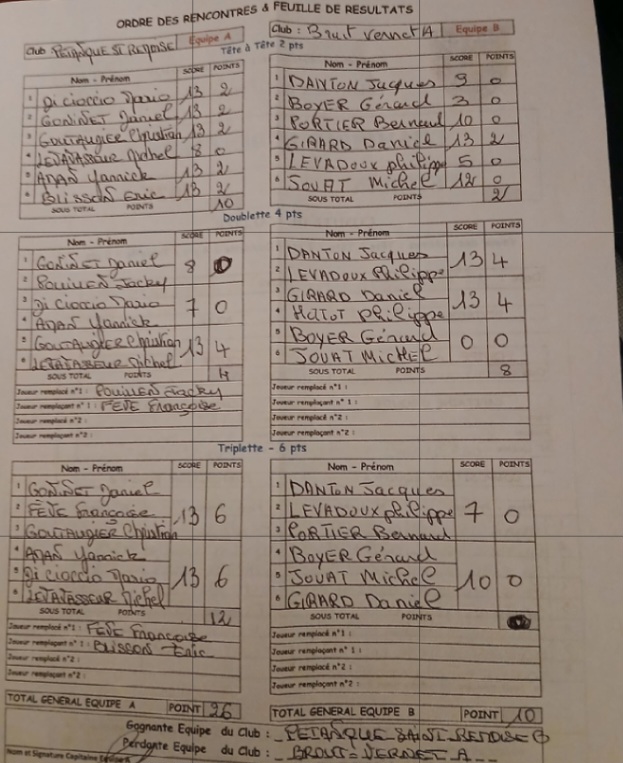 ORDRE DES RENCONTRES & FEUILLE DE RESULTATS
Club : PETANQUE ST REMOISE Equipe A
Club : Brout Vernet A Equipe B
Tête à Tête 2 pts
Nom - Prénom SCORE POINTS
1 Di cioccio Dario 13 2
2 GONINET Daniel 13 2
3 GOUTAUGIER Christian 13 2
4 LEVAVASSEUR Michel 8 0
5 ADAN Yannick 13 2
6 BLISSON Eric 13 2
SOUS TOTAL POINTS 10
Nom - Prénom SCORE POINTS
1 DANTON Jacques 9 0
2 BOYER Gérard 3 0
3 PORTIER Bernard 10 0
4 GIRARD Daniel 13 2
5 LEVADOUX philippe 5 0
6 JOUAT Michel 12 0
SOUS TOTAL POINTS 2
Doublette 4 pts
Nom - Prénom SCORE POINTS
1 GONINET Daniel 8 0
2 POUILLEN Jacky
3 Di cioccio Dario 7 0
4 ADAN Yannick
5 GOUTAUGIER Christian 13 4
6 LEVAVASSEUR Michel
SOUS TOTAL POINTS 4
Joueur remplacé n°1 : POUILLEN Jacky
Joueur remplaçant n°1 : FEVE Françoise
Joueur remplacé n°2 :
Joueur remplaçant n°2 :
Nom - Prénom SCORE POINTS
1 DANTON Jacques 13 4
2 LEVADOUX Philippe
3 GIRARD Daniel 13 4
4 HATOT philippe
5 BOYER Gérard 0 0
6 JOUAT MicHEL
SOUS TOTAL POINTS 8
Joueur remplacé n°1 :
Joueur remplaçant n°1 :
Joueur remplacé n°2 :
Joueur remplaçant n°2 :
Triplette - 6 pts
Nom - Prénom SCORE POINTS
1 GONINET Daniel
2 FEVE Françoise 13 6
3 GOUTAUGIER Christian
4 ADAN Yannick
5 Di cioccio Dario 13 6
6 LEVAVASSEUR Michel
SOUS TOTAL POINTS 12
Joueur remplacé n°1 : FEVE Francoise
Joueur remplaçant n°1 : BLISSON Eric
Joueur remplacé n°2 :
Joueur remplaçant n°2 :
Nom - Prénom SCORE POINTS
1 DANTON Jacques
2 LEVADOUX philippe 7 0
3 PORTIER Bernard
4 BOYER Gérard
5 JOUAT Michel 10 0
6 GIRARD Daniel
SOUS TOTAL POINTS
Joueur remplacé n°1 :
Joueur remplaçant n°1 :
Joueur remplacé n°2 :
Joueur remplaçant n°2 :
TOTAL GENERAL EQUIPE A POINT 26
TOTAL GENERAL EQUIPE B POINT 10
Gagnante Equipe du Club : PETANQUE SAINT REMOISE
Perdante Equipe du Club : BROUT-VERNET A
Nom et Signature Capitaine Equipe A